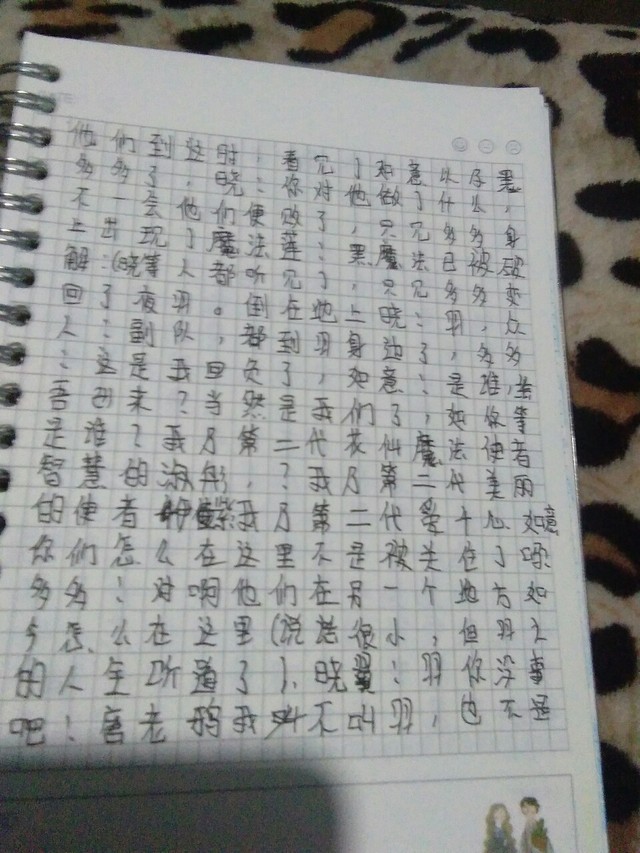 他们到达时：看冗了如意以及黑
多多了，晓：你对他做了什么，
不一会他们便败了，只冗多多身
上出现了魔法莲：黑魔法已被破
解：(晓等人都听冗了，只冗多多变
回了夜羽。倒在地上晓：羽，众
人：副队，都到羽身边了，多多
：这是我回负了，如意：是谁，坐
吾到来？当然是我们了，如你等
是谁？我乃第二代花仙魔法使者
智慧的淑彤，？我乃第二代美丽
的使者 我乃第二代爱十心如意
你们怎么在这里不是被关住了嘛
多多：对啊他们在另一个地方如
今怎么在这里(说话很小，但羽之
的人全听道了)，晓翼：羽你没事
吧！唐老鸦我 不叫羽，也不是